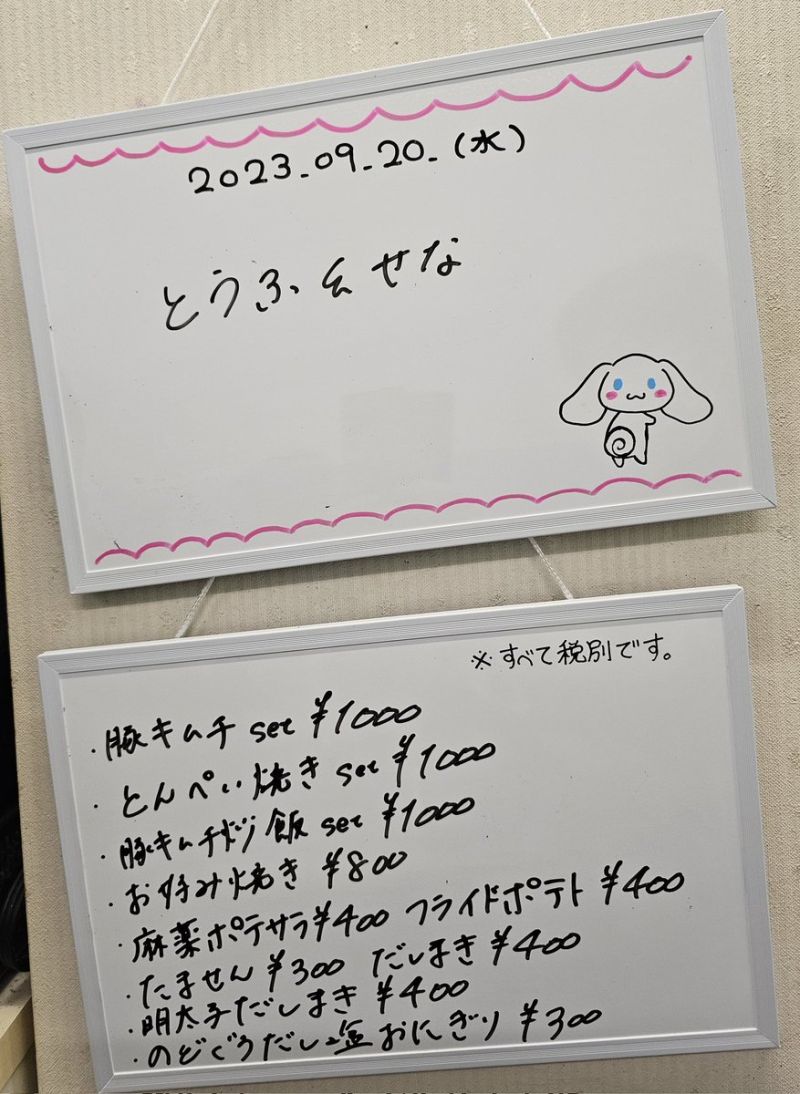 2023.09.20.(水)
とうふ&せな
※すべて税別です。
・豚キムチ set ¥1000
・とんぺい焼き set ¥1000
・豚キムチ炒飯 set ¥1000
・お好み焼き ¥800
・麻薬ポテサラ¥400 フライドポテト ¥400
・たません ¥300 だしまき ¥400
・明太子だしまき ¥400
・のどぐろだし塩おにぎり ¥300